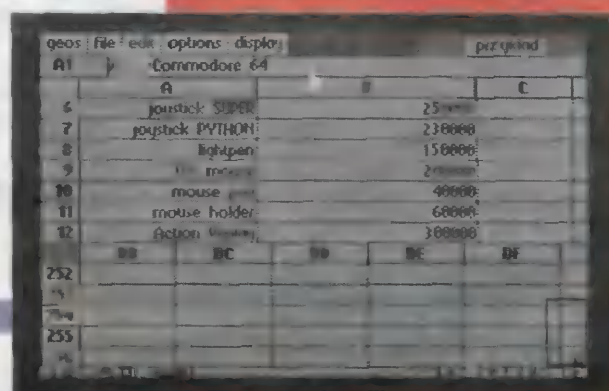 geos file edit options display przykład
A1 Commodore 64
A B C
6 joystick SUPER
7 joystick PYTHON 230000
8 lightpen 150000
9
10 mouse 40000
11 mouse holder 60000
12 Action 300000
BB BC BD BE BF
252
254
255